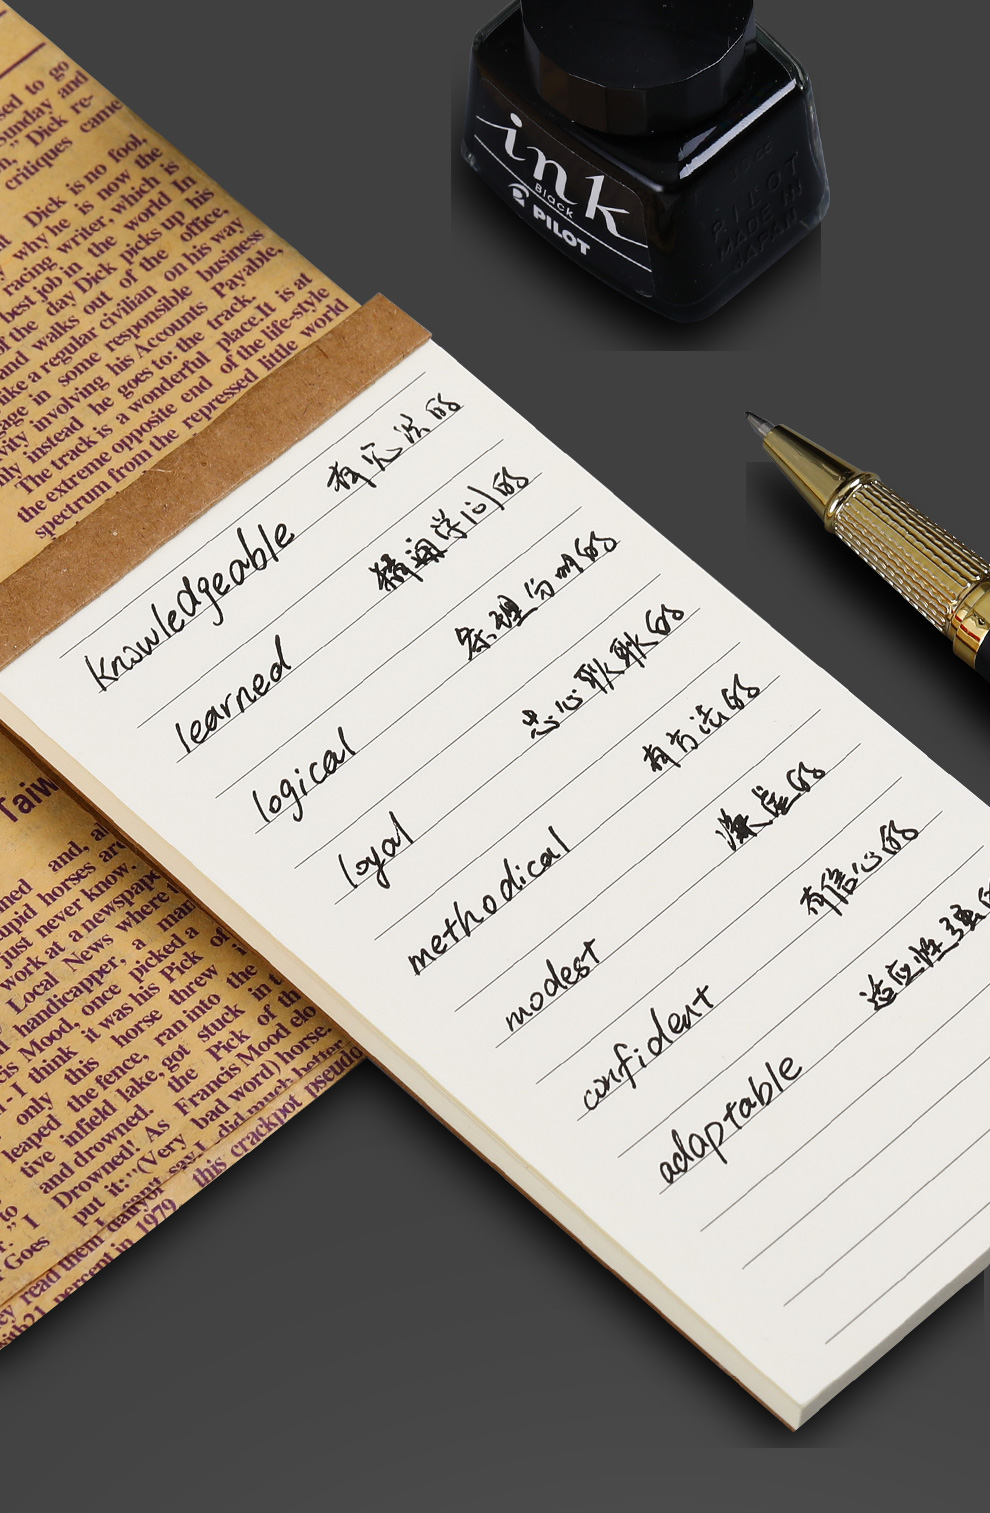 sed to go
Sunday and
n," Dick re-
critiques came
Dick is no fool,
why he is now the
racing writer, which is
best job in the world In
of the day Dick picks up his
and walks out of the office,
like a regular civilian on his way
gage in some responsible business
vity involving his Accounts Payable,
nly instead he goes to: the track.
The track is a wonderful place.It is at
the extreme opposite end of the life-style
spectrum from the repressed little world
ink
Black
PILOT
PILOT
MADE IN
JAPAN
knowledgeable 有见识的
learned 精通学问的
logical 条理分明的
loyal 忠心耿耿的
methodical 有方法的
modest 谦虚的
confident 有信心的
adaptable 适应性强的
Taiw
ned and, a
upid horses are
just never know.
work at a newspape
Local News where
handicapper, a man
is Mood, once picked a
- I think it was his Pick of
only this horse threw i
leaped the fence, ran into the
tive infield lake, got stuck in t
and drowned. the Pick of th
I Drowned! As Francis Mood elo
put it:"(Very bad word) horse.
Goes
ey read them I danyor say.I did much better
with21 percent in 1979 this crackpot pseudo